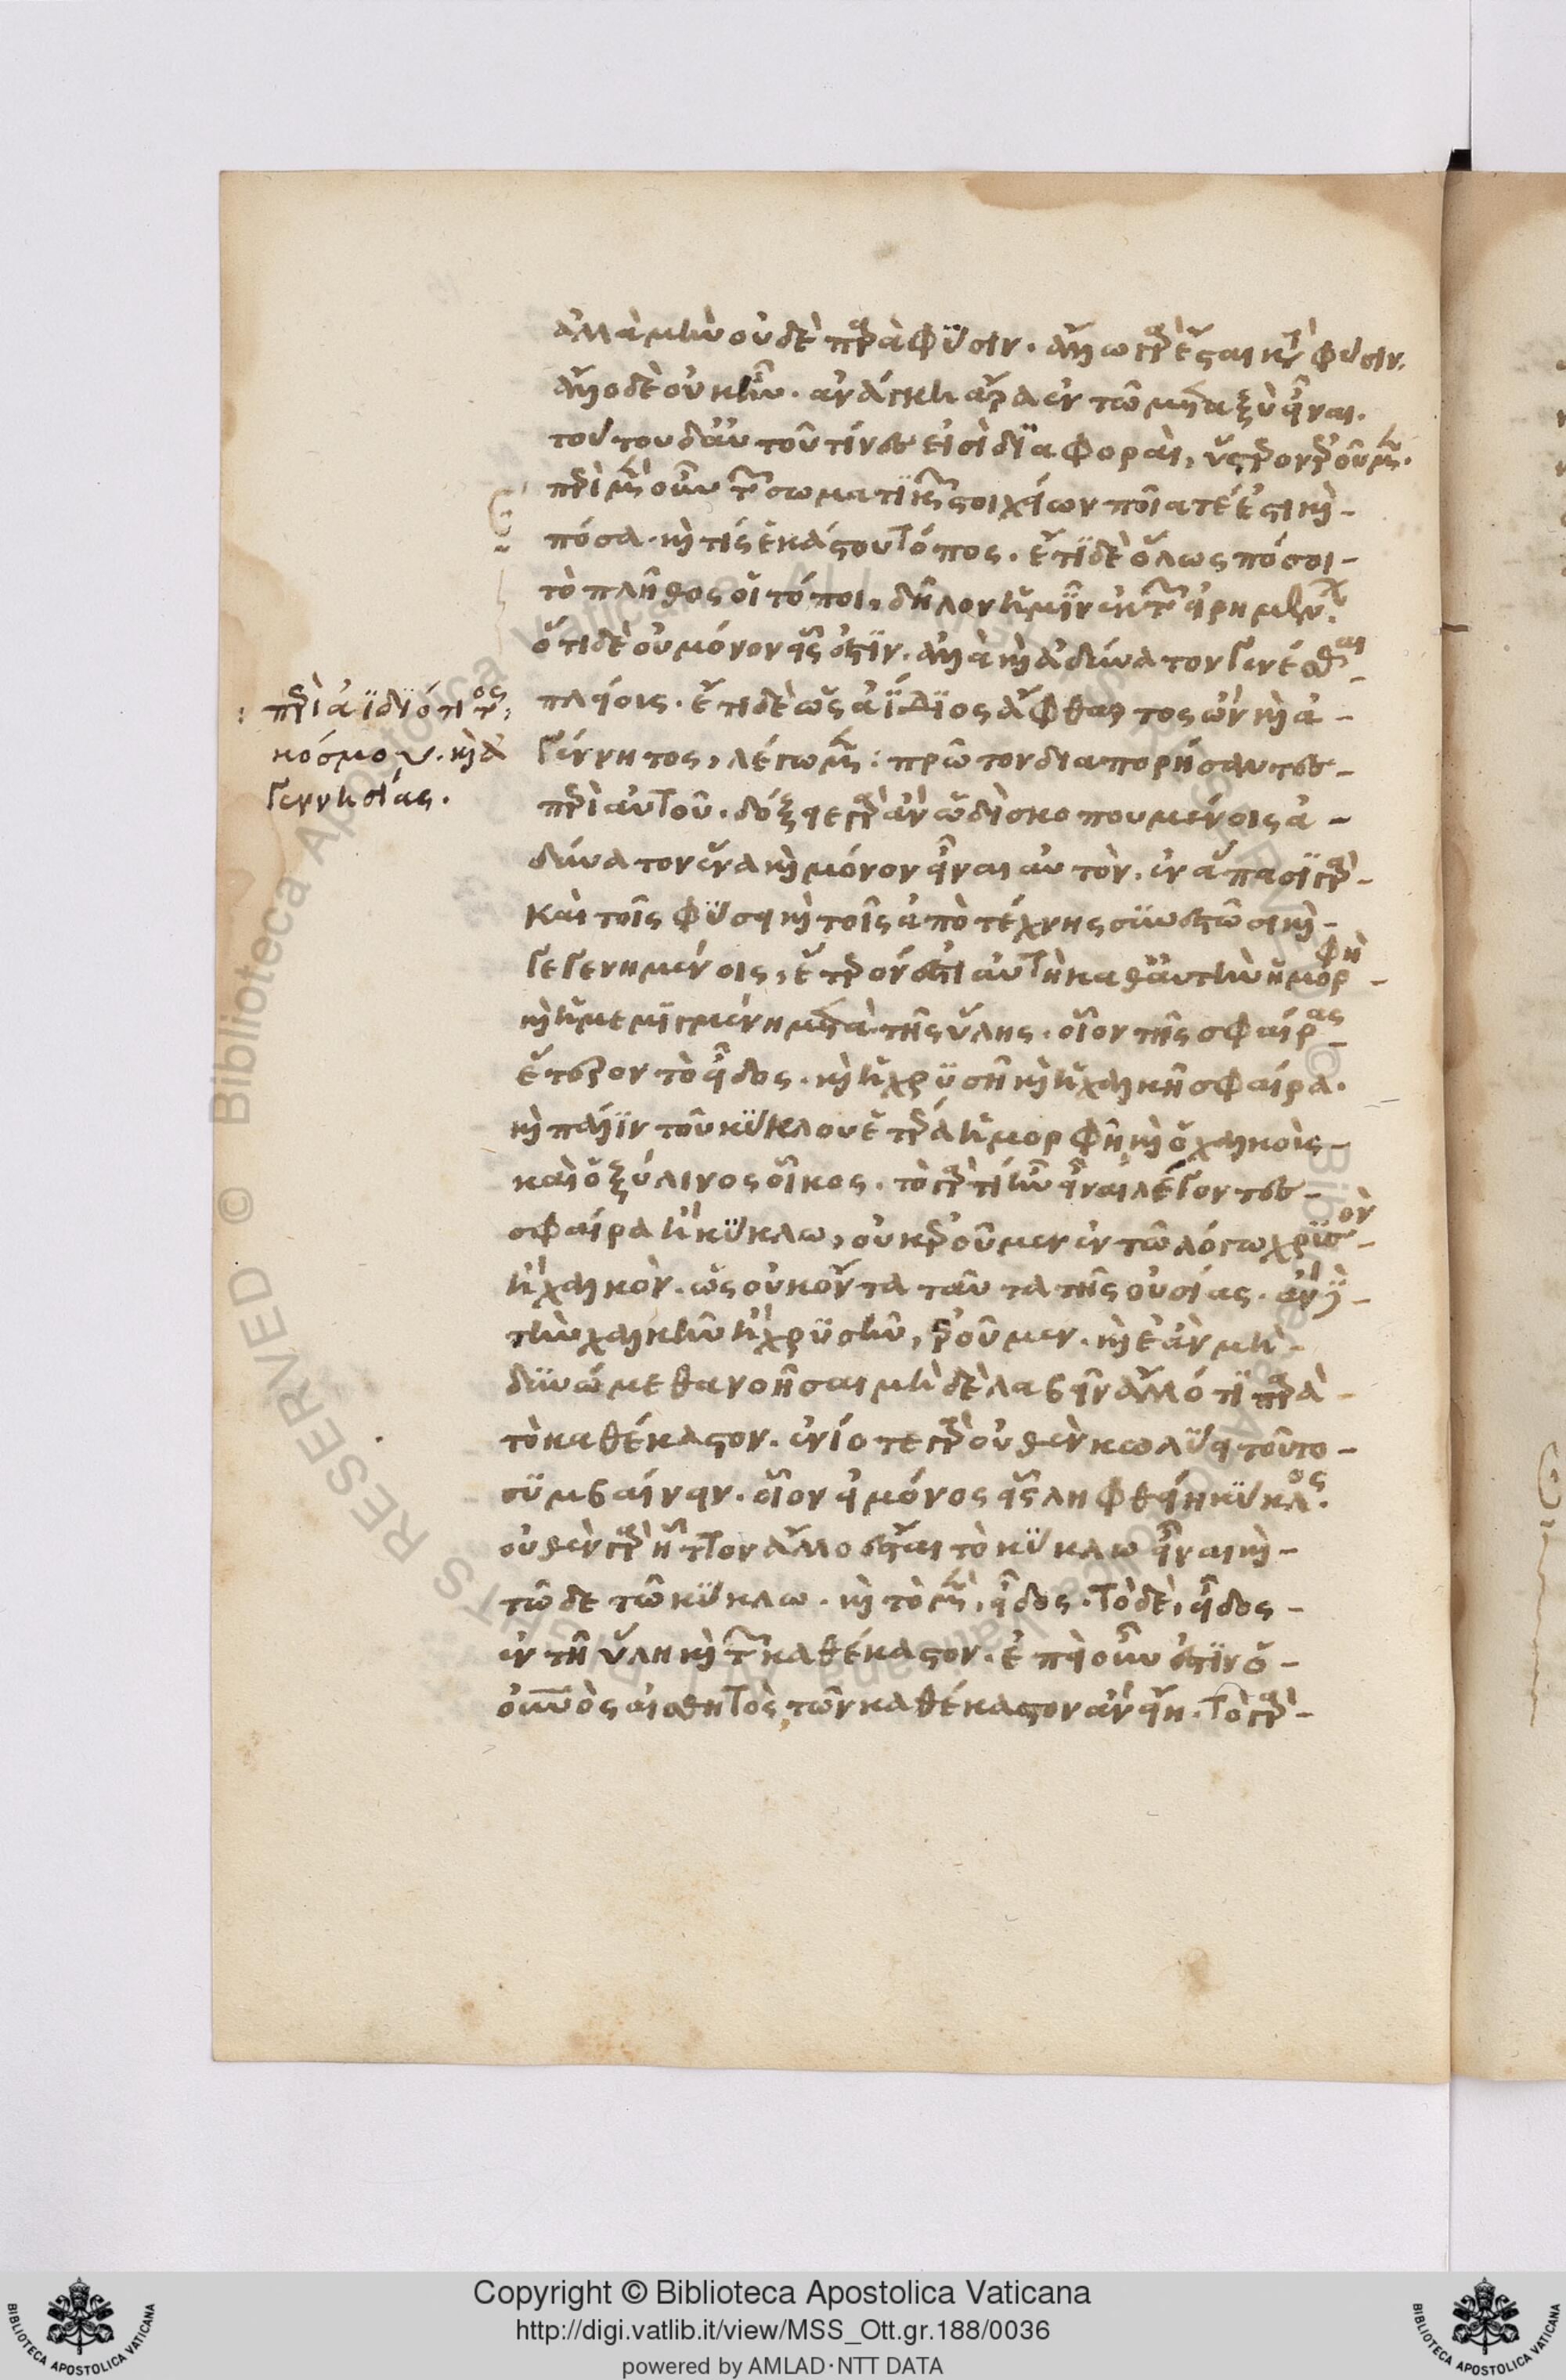 ἀλλὰ μὴν οὐδὲ παρὰ φύσιν. ἄλλω γὰρ ἔσται κατὰ φύσιν.
ἄλλο δὲ οὐκ ἦν. ἀνάγκη ἄρα ἐν τῶ μεταξὺ εἶναι.
τούτου δ' αὐτοῦ τίνες εἰσὶ διαφοραὶ, ὕστερον ἐροῦμεν.
περὶ μὲν οὖν τῶν σωματικῶν στοιχείων ποῖά τέ ἐστι καὶ
πόσα. καὶ τίς ἑκάστου τόπος. ἔτι δὲ ὅλως πόσοι
τὸ πλῆθος οἱ τόποι, δῆλον ἡμῖν ἐκ τῶν εἰρημένων.
ὅτι δὲ οὐ μόνον εἷς ἐστὶν. ἀλλὰ καὶ ἀδύνατον γενέσθαι
πλείους. ἔτι δὲ ὡς ἀΐδιος ἄφθαρτος ὢν καὶ ἀ
γέννητος, λέγωμεν: πρῶτον διαπορήσαντες
περὶ αὐτοῦ. δόξειε γὰρ ἂν ὡδὶ σκοπουμένοις ἀ
δύνατον ἕνα καὶ μόνον εἶναι αὐτὸν. ἐν ἅπασι γὰρ
καὶ τοῖς φύσει καὶ τοῖς ἀπὸ τέχνης συνεστῶσι καὶ
γεγενημένοις, ἕτερόν ἐστι αὐτὴ καθ' αὑτὴν ἡ μορφὴ
καὶ ἡ μεμιγμένη μετὰ τῆς ὕλης. οἷον τῆς σφαίρας
ἕτερον τὸ εἶδος. καὶ ἡ χρυσῆ καὶ ἡ χαλκῆ σφαίρα.
καὶ πάλιν τοῦ κύκλου ἑτέρα ἡ μορφὴ καὶ ὁ χαλκοῖς
καὶ ὁ ξύλινος οἶκος. τὸ γὰρ τί ἦν εἶναι λέγοντες
σφαίρα ἢ κύκλω, οὐκ ἐροῦμεν ἐν τῶ λόγω χρυσὸν
ἢ χαλκὸν. ὡς οὐκ ὄντα ταῦτα τῆς οὐσίας. ἂν δὲ
τὴν χαλκῆν ἢ χρυσῆν, ἐροῦμεν. καὶ ἐὰν μὴ
δυνώμεθα νοῆσαι μὴ δὲ λαβεῖν ἄλλό τι παρὰ
τὸ καθέκαστον. ἐνίοτε γὰρ οὐθὲν κωλύει τοῦτο
συμβαίνειν. οἷον εἰ μόνος εἷς ληφθείη κύκλος.
οὐθὲν γὰρ ἧττον ἄλλο ἔσται τὸ κύκλω εἶναι καὶ
τῶδε τῶ κύκλω. καὶ τὸ μὲν, εἶδος. τὸ δὲ, εἶδος
ἐν τῆ ὕλη καὶ τῶν καθέκαστον. ἐπεὶ οὖν ἐστὶν ὁ
οὐνὸς αἰσθητὸς, τῶν καθέκαστον ἂν εἴη. τὸ γὰρ
περὶ ἀϊδιότητος
κόσμου. καὶ ἀ
γεννησίας.
Copyright © Biblioteca Apostolica Vaticana
http://digi.vatlib.it/view/MSS_Ott.gr.188/0036
powered by AMLAD·NTT DATA
BIBLIOTECA APOSTOLICA VATICANA
BIBLIOTECA APOSTOLICA VATICANA